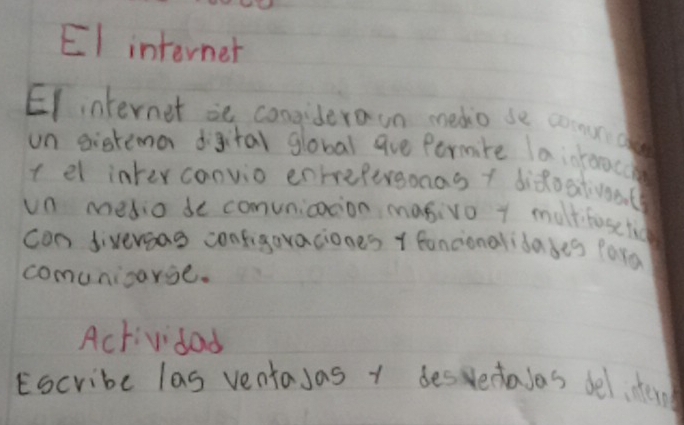 El internet
El internet se considera un medio de comunicacion
un sistema digital global que Permite la interaccion
Y el inter convio entrepersonas Y dispositivos es
un medio de comunicacion masivo Y multifasetico
con diversas configuraciones Y funcionalidades Para
comunicarse.
Actividad
Escribe las ventajas Y desventajas del internet